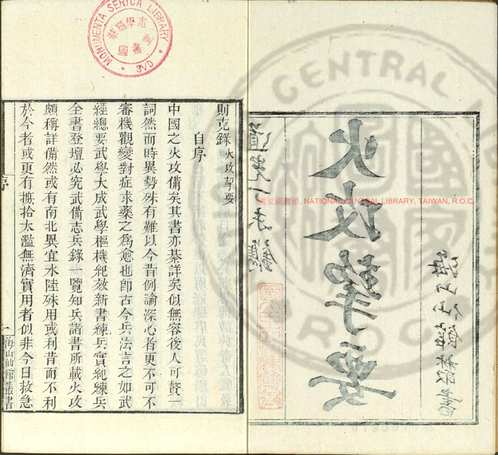 火攻挈要
則克錄 火攻挈要
自序
中國之火攻備矣其書亦綦詳矣似無容後人可贅一
詞然而時異勢殊有難以今昔例論深心者更不可不
審機觀變對症求藥之爲愈也卽古今兵法言之如武
經總要武學大成武學樞機紀效新書練兵實紀練兵
全書登壇必究武備志兵錄一覽知兵諸書所載火攻
頗稱詳備然或有南北異宜水陸殊用或利昔而不利
於今者或更有摭拾太濫無濟實用者似非今日救急
序
一
海山仙館叢書
MONUMENTA SERICA LIBRARY
CAE
NATIONAL CENTRAL LIBRARY, TAIWAN, R.O.C.
CENTRAL
ROC